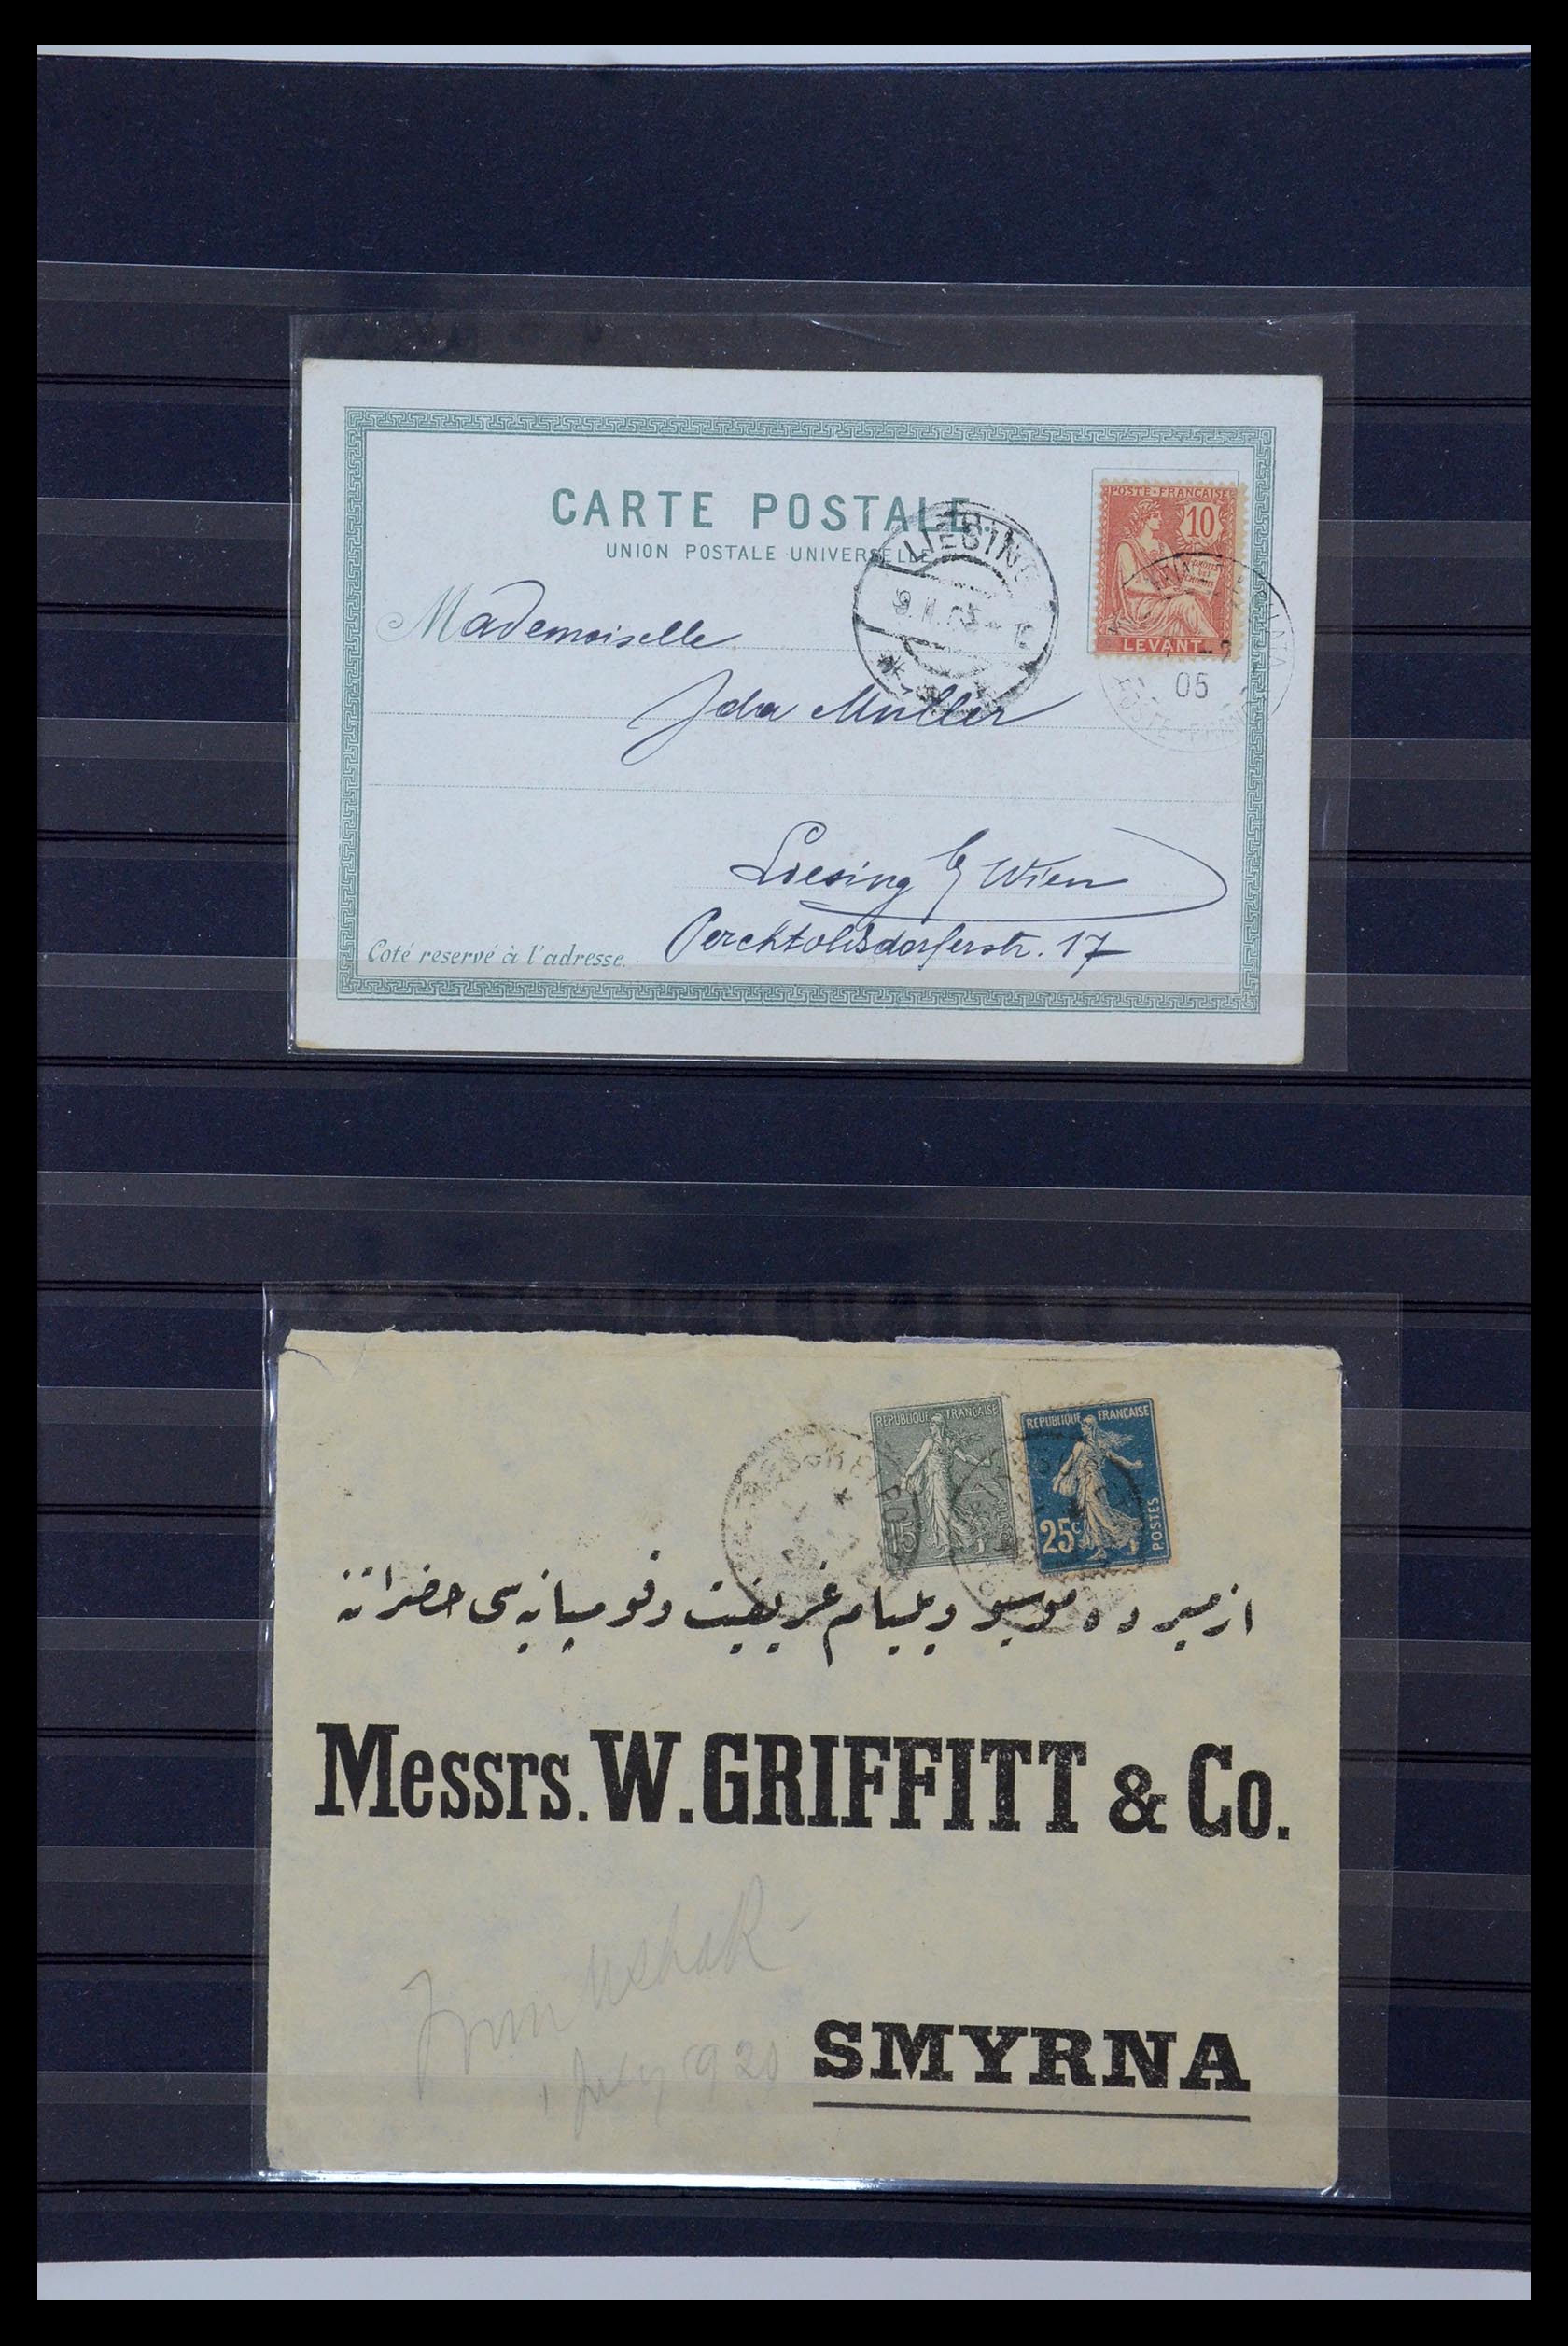 CARTE POSTALE.
UNION POSTALE UNIVERSELLE
POSTE FRANÇAISE
10
LEVANT
LIESING
05
Mademoiselle
Ida Müller
Liesing b/ Wien
Perchtolsdorferstr. 17
Coté reservé à l'adresse.
REPUBLIQUE FRANÇAISE
15c
REPUBLIQUE FRANÇAISE
25c
POSTES
ازميرده موسيو ويليام غريفيت وقومپانيه سى حضراتنه
Messrs. W. GRIFFITT & Co.
From Ushak
1 July 1920
SMYRNA